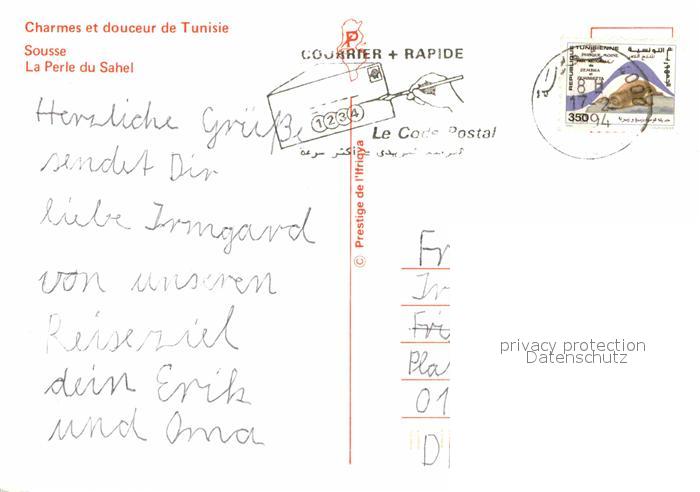 Charmes et douceur de Tunisie
Sousse
La Perle du Sahel
P
COURRIER + RAPIDE
1234
Le Code Postal
REPUBLIQUE TUNISIENNE
350
17 2
94
Herzliche Grüße
sendet Dir
liebe Irmgard
von unseren
Reiseziel
dein Erik
und Oma
© Prestige de l'Ifriqya
Fr
Ir
Fri
Pla
01
D
privacy protection
Datenschutz